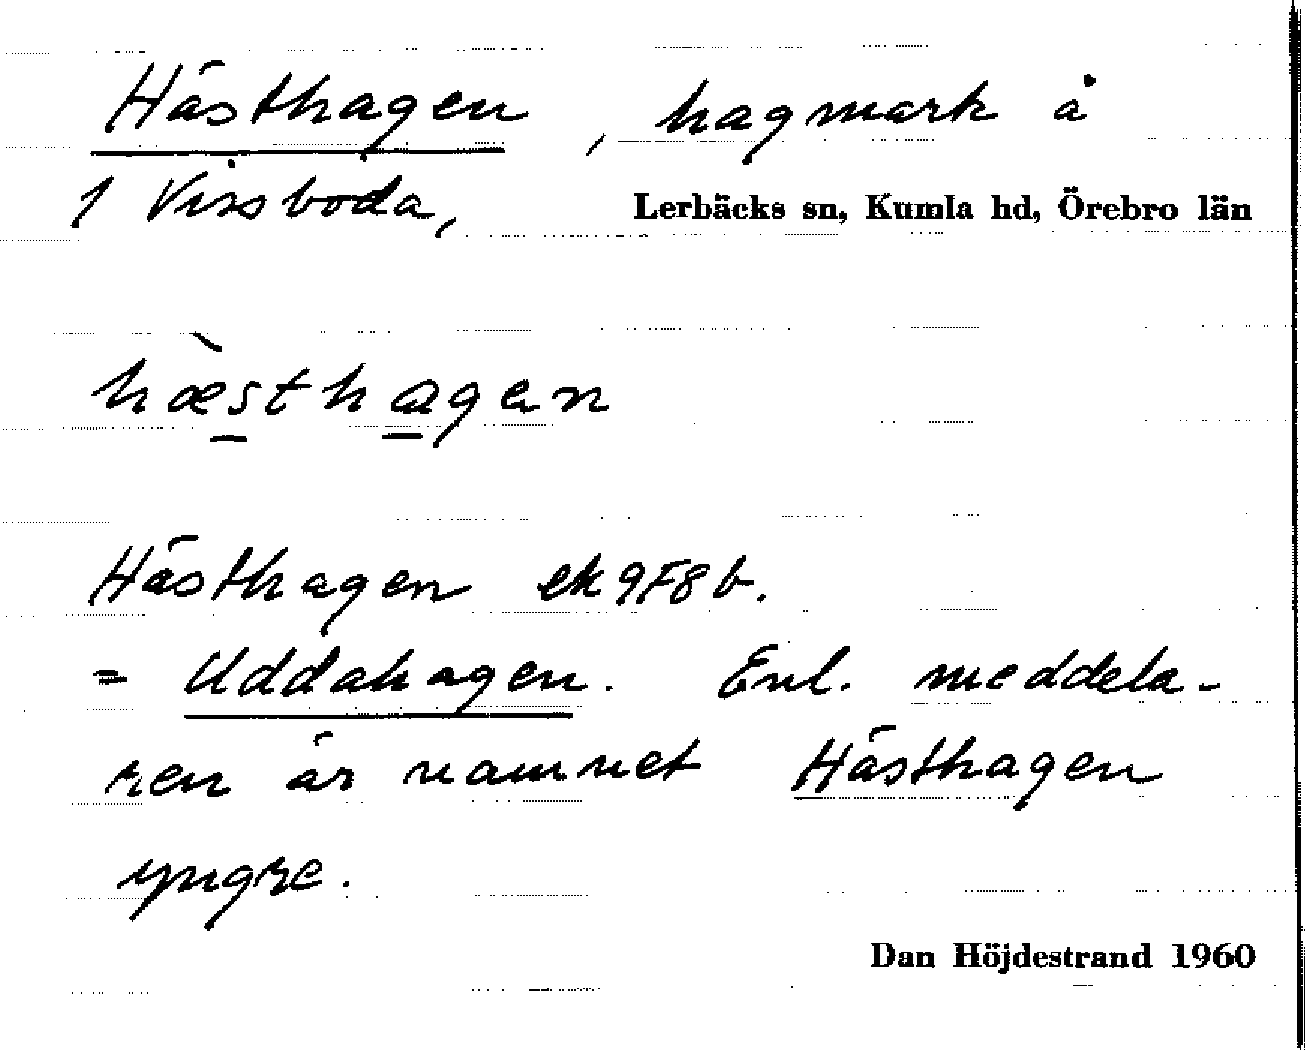 Hästhagen, hagmark å
1 Vissboda, Lerbäcks sn, Kumla hd, Örebro län
hæ̀sthagen
Hästhagen ek 9F8b.
= Uddahagen. Enl. meddela-
ren är namnet Hästhagen
yngre.
Dan Höjdestrand 1960